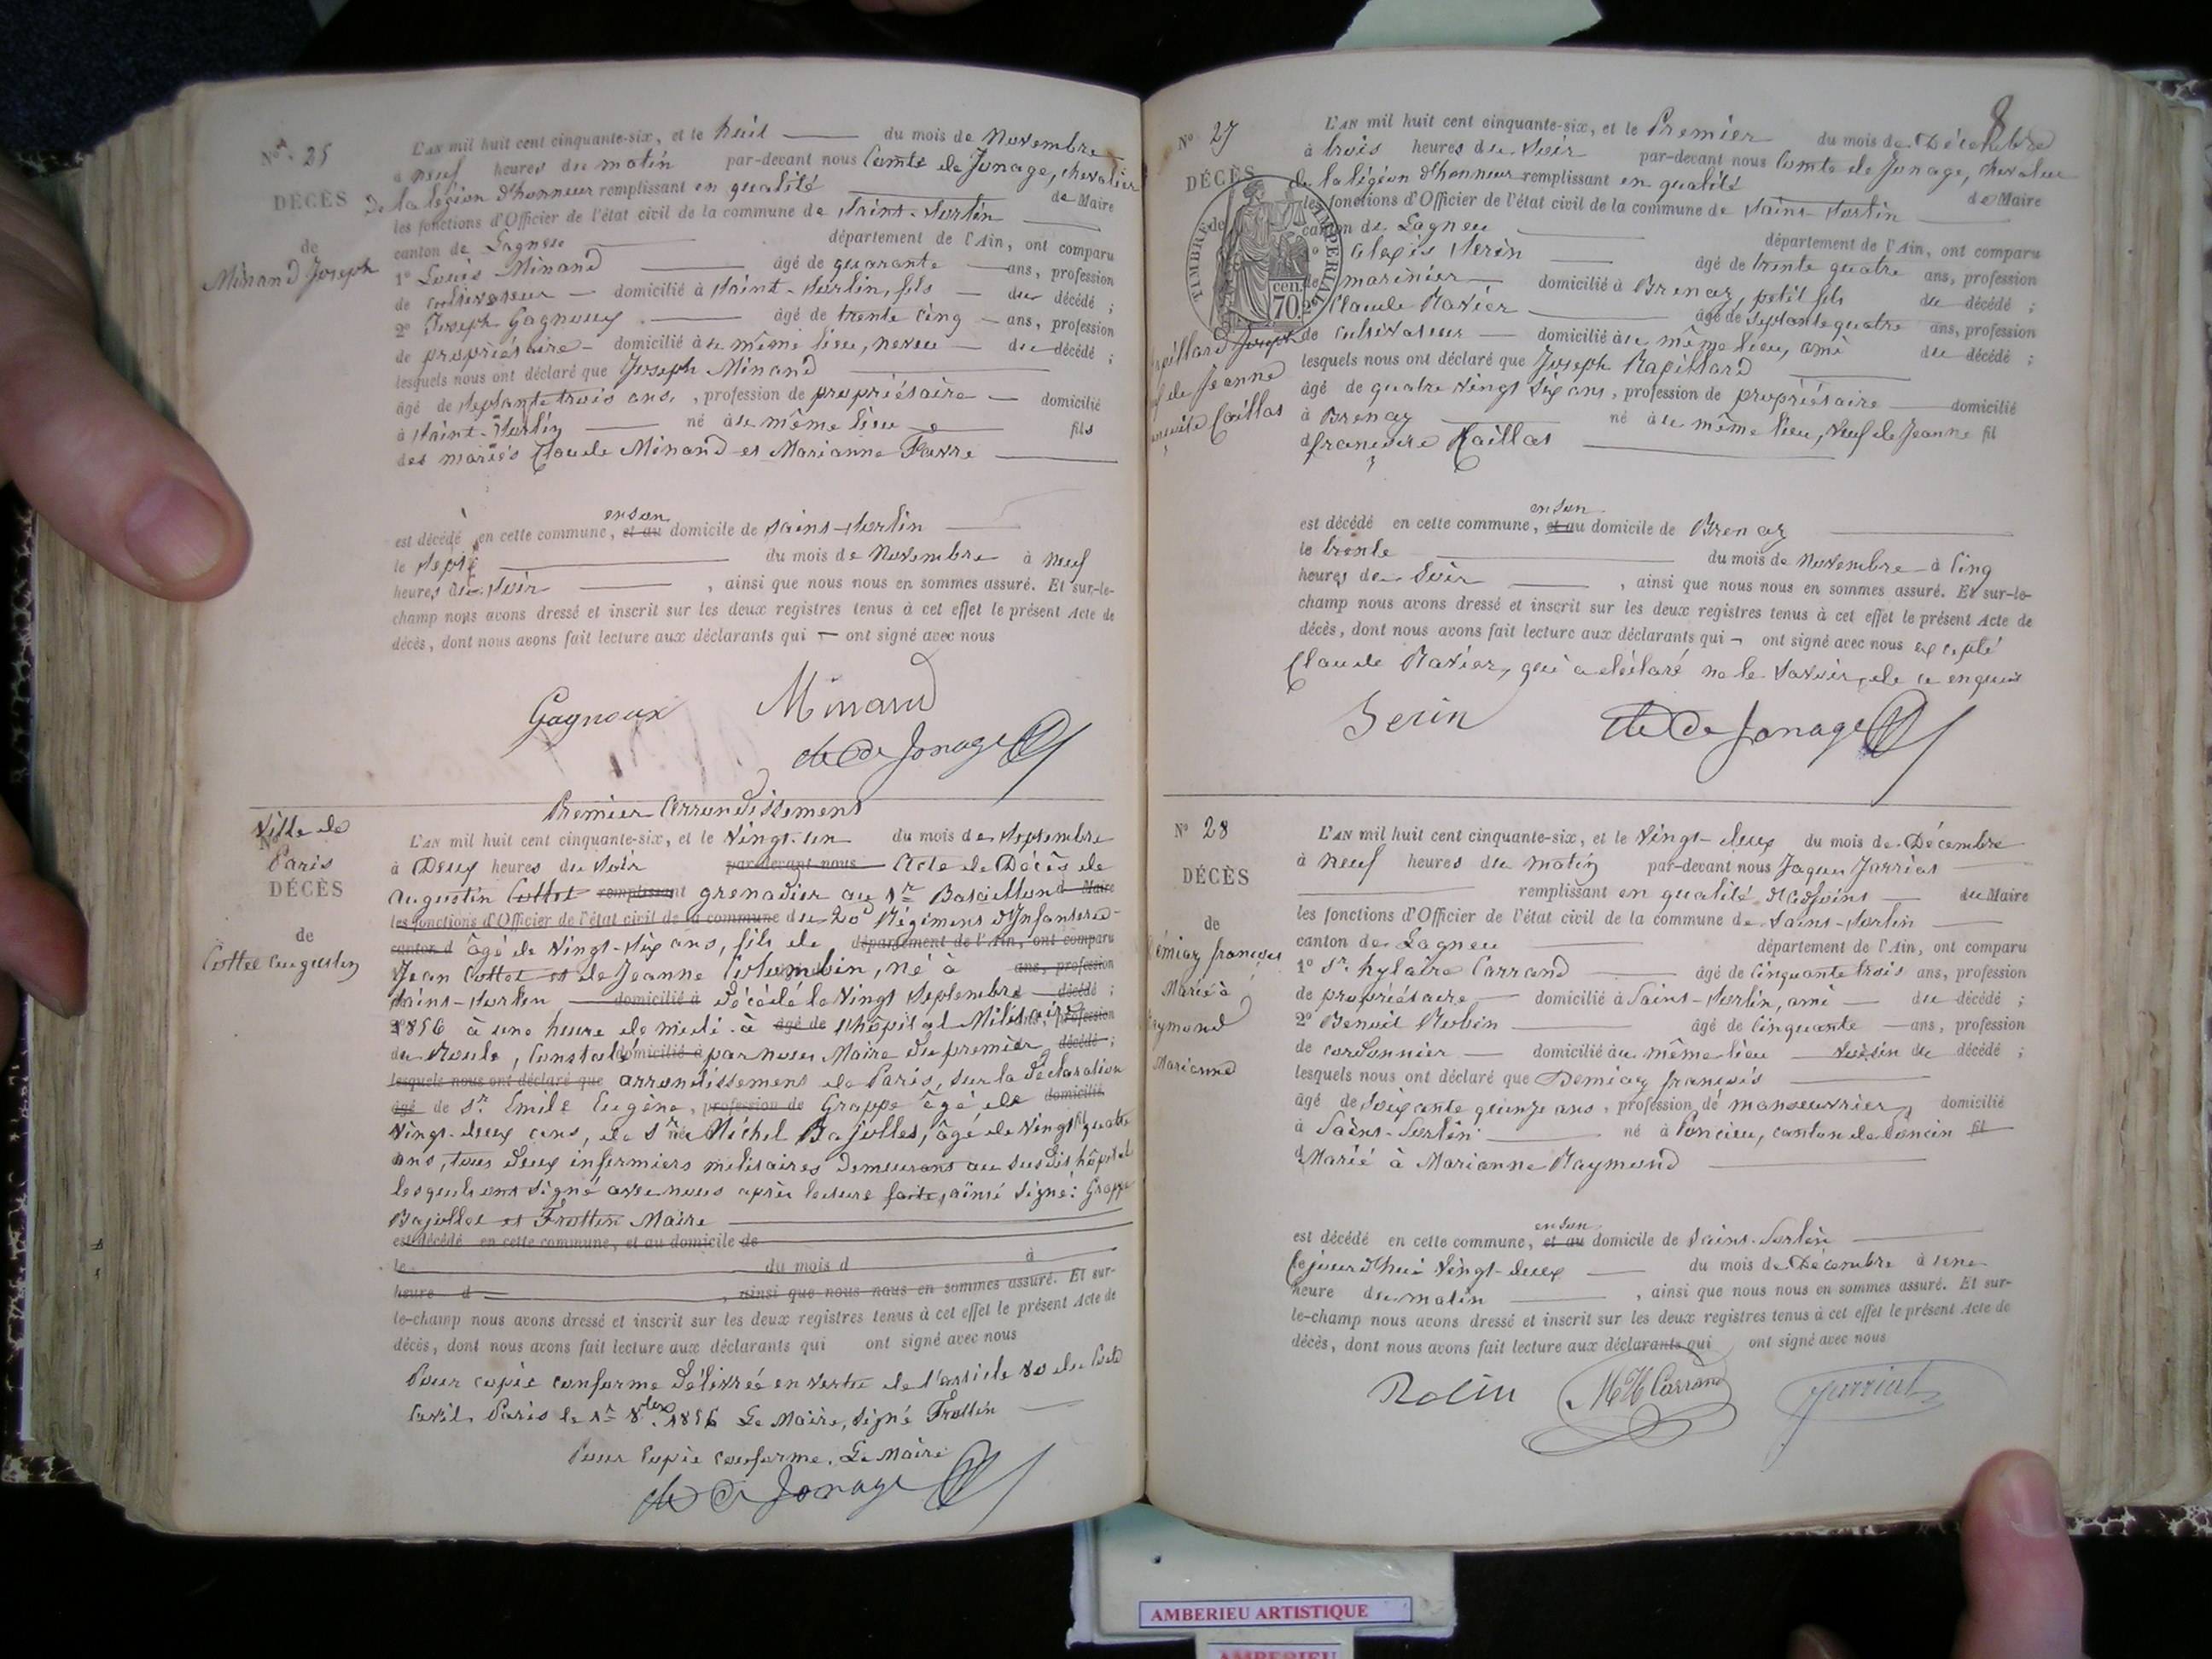 No. 25
DÉCÈS
de
Minand Joseph
L'AN mil huit cent cinquante-six, et le huit du mois de Novembre
à neuf heures du matin par-devant nous Comte de Jonage, chevalier
de la légion d'honneur remplissant en qualité de Maire
les fonctions d'Officier de l'état civil de la commune de Saint-Sorlin
canton de Lagneu département de l'Ain, ont comparu
1º Louis Minand âgé de quarante ans, profession
de cultivateur domicilié à Saint-Sorlin, fils du décédé ;
2º Joseph Gagnoux âgé de trente cinq ans, profession
de propriétaire domicilié à u même lieu, neveu du décédé ;
lesquels nous ont déclaré que Joseph Minand
âgé de septante trois ans, profession de propriétaire domicilié
à Saint-Sorlin né à u même lieu fils
des mariés Claude Minand et Marianne Favre
en son
est décédé en cette commune, et au domicile de Saint-Sorlin
le sept du mois de Novembre à neuf
heures du soir, ainsi que nous nous en sommes assuré. Et sur-le-
champ nous avons dressé et inscrit sur les deux registres tenus à cet effet le présent Acte de
décès, dont nous avons fait lecture aux déclarants qui ont signé avec nous
Gagnoux Minand
de Jonage
Ville de
Nº
Paris
DÉCÈS
de
Cottet Augustin
Premier Arrondissement
L'AN mil huit cent cinquante-six, et le Vingt-un du mois de Septembre
à Deux heures du soir par-devant nous Acte de Décès de
Augustin Cottet remplissant grenadier au 1er Bataillon d Maire
les fonctions d'Officier de l'état civil de la commune du 20e Régiment d'Infanterie
canton d âgé de Vingt-six ans, fils de département de l'Ain, ont comparu
Jean Cottet et de Jeanne Colombin, né à ans, profession
Saint-Sorlin domicilié à Décédé le Vingt Septembre décédé ;
1856 à une heure de midi à âgé de l'hôpital Militaire ans, profession
du Roule, Constaté domicilié à par nous Maire du premier décédé ;
lesquels nous ont déclaré que arrondissement de Paris, sur la déclaration
âgé de Sr. Emile Eugène, profession de Grappe âgé de domicilié
Vingt-deux ans, de Sr né à Michel Bajollet, âgé de Vingt quatre
ans, tous deux infirmiers militaires demeurant au susdit hôpital
lesquels ont signé avec nous après lecture faite, ainsi signé : Grappe
Bajollet et Frottin Maire
est décédé en cette commune, et au domicile de
le du mois d à
heure d , ainsi que nous nous en sommes assuré. Et sur-
le-champ nous avons dressé et inscrit sur les deux registres tenus à cet effet le présent Acte de
décès, dont nous avons fait lecture aux déclarants qui ont signé avec nous
Pour copie conforme Délivrée en vertu de l'article 80 du Code
Civil, Paris le 1er 8bre 1856 Le Maire, signé Frottin
Pour Copie conforme, Le Maire
de Jonage
8
Nº 27
DÉCÈS
de
TIMBRE IMPERIAL
70 cen.
Rapillard Joseph
de Jeanne
Caillas
L'AN mil huit cent cinquante-six, et le Premier du mois de Décembre
à trois heures du soir par-devant nous Comte de Jonage, chevalier
de la légion d'honneur remplissant en qualité de Maire
les fonctions d'Officier de l'état civil de la commune de Saint-Sorlin
canton de Lagneu département de l'Ain, ont comparu
1º Alexis Serin âgé de trente quatre ans, profession
de marinier domicilié à Brenaz, petit fils du décédé ;
2º Claude Ravier âgé de septante quatre ans, profession
de cultivateur domicilié à u même lieu, ami du décédé ;
lesquels nous ont déclaré que Joseph Rapillard
âgé de quatre vingt six ans, profession de propriétaire domicilié
à Brenaz né à u même lieu, Veuf de Jeanne fil
d françoise Caillas
en son
est décédé en cette commune, et au domicile de Brenaz
le trente du mois de Novembre à Cinq
heures du Soir, ainsi que nous nous en sommes assuré. Et sur-le-
champ nous avons dressé et inscrit sur les deux registres tenus à cet effet le présent Acte de
décès, dont nous avons fait lecture aux déclarants qui ont signé avec nous excepté
Claude Ravier, qui a déclaré ne le savoir, de ce enquis
Serin de Jonage
Nº 28
DÉCÈS
de
Démiaz françois
Marié à
Raymond
Marianne
L'AN mil huit cent cinquante-six, et le Vingt-deux du mois de Décembre
à neuf heures du matin par-devant nous Jaques Jarrias
remplissant en qualité d'Adjoint du Maire
les fonctions d'Officier de l'état civil de la commune de Saint-Sorlin
canton de Lagneu département de l'Ain, ont comparu
1º Sr. hylaire Carrand âgé de Cinquante trois ans, profession
de propriétaire domicilié à Saint-Sorlin, ami du décédé ;
2º Benoit Robin âgé de Cinquante ans, profession
de cordonnier domicilié à u même lieu voisin du décédé ;
lesquels nous ont déclaré que Demiaz françois
âgé de soixante quinze ans, profession de manoeuvrier, domicilié
à Saint-Sorlin né à Poncieu, canton de Poncin fil
d Marié à Marianne Raymond
en son
est décédé en cette commune, et au domicile de Saint-Sorlin
le jourd'hui Vingt-deux du mois de Décembre à une
heure du matin, ainsi que nous nous en sommes assuré. Et sur-
le-champ nous avons dressé et inscrit sur les deux registres tenus à cet effet le présent Acte de
décès, dont nous avons fait lecture aux déclarants qui ont signé avec nous
Robin Carrand
AMBERIEU ARTISTIQUE
AMBERIEU